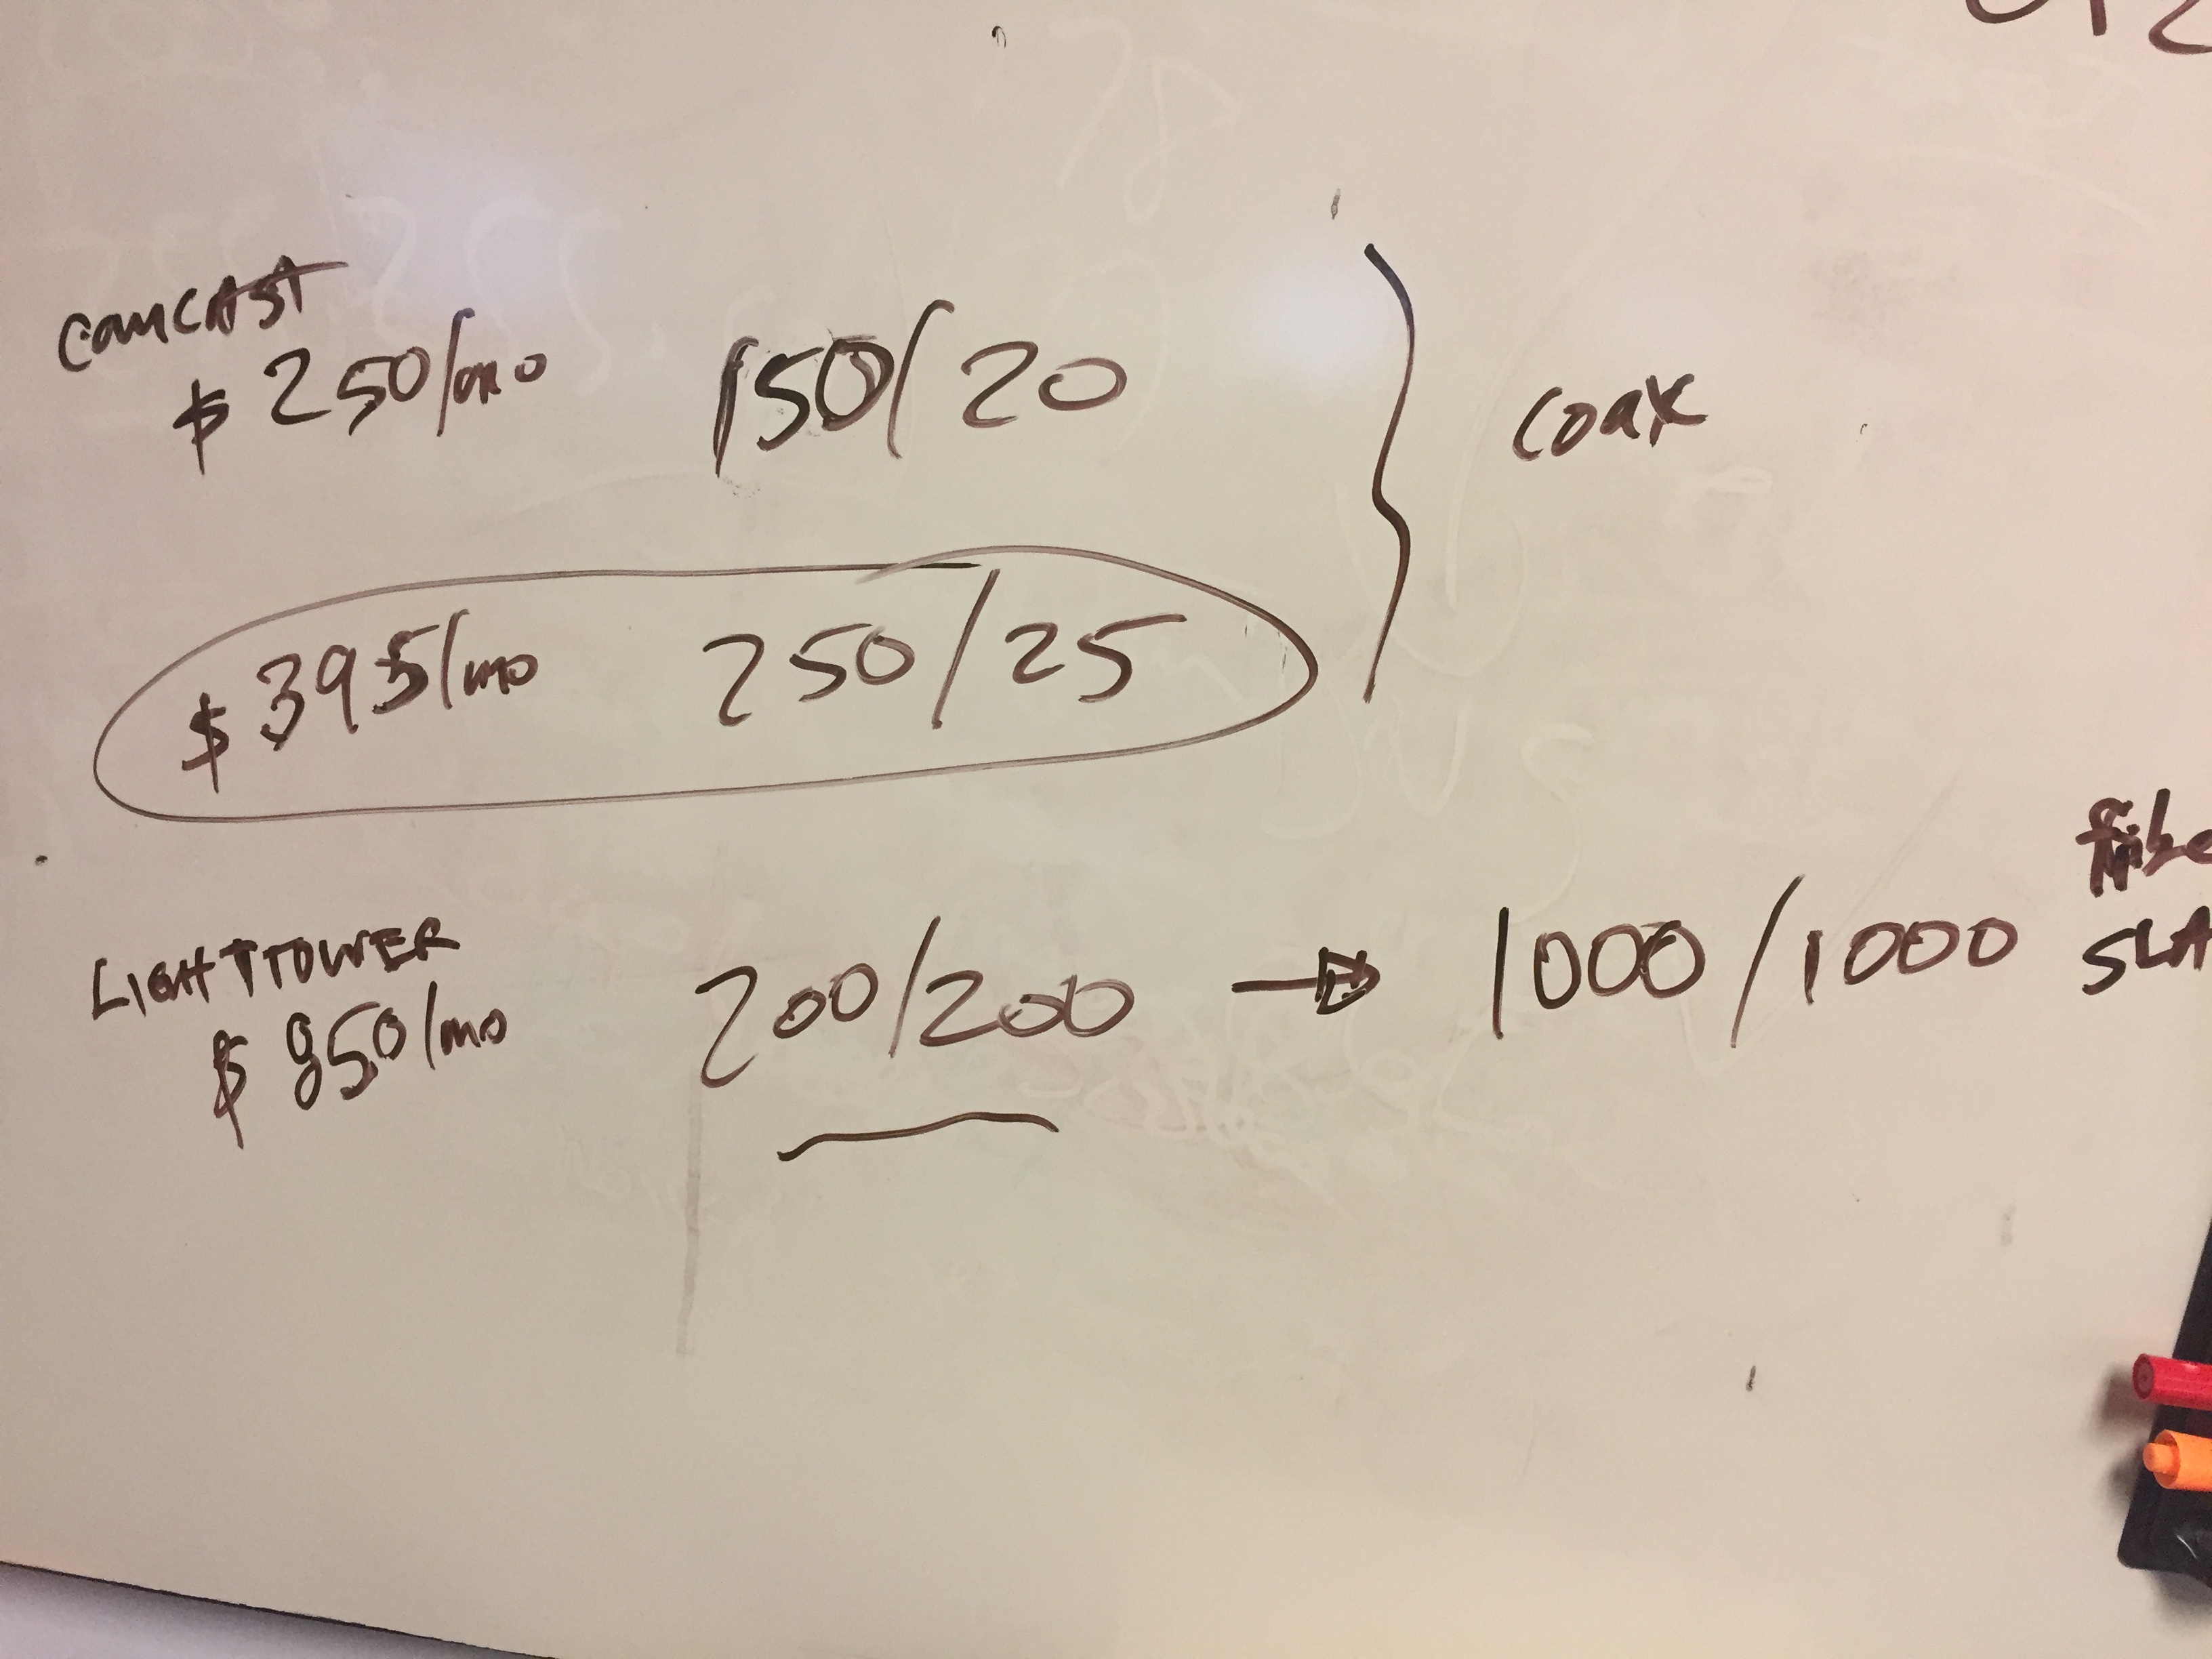 COMCAST
$ 250/mo 150/20
coax
$ 395/mo 250/25
LIGHTTOWER
$ 850/mo 200/200 → 1000/1000
SLA